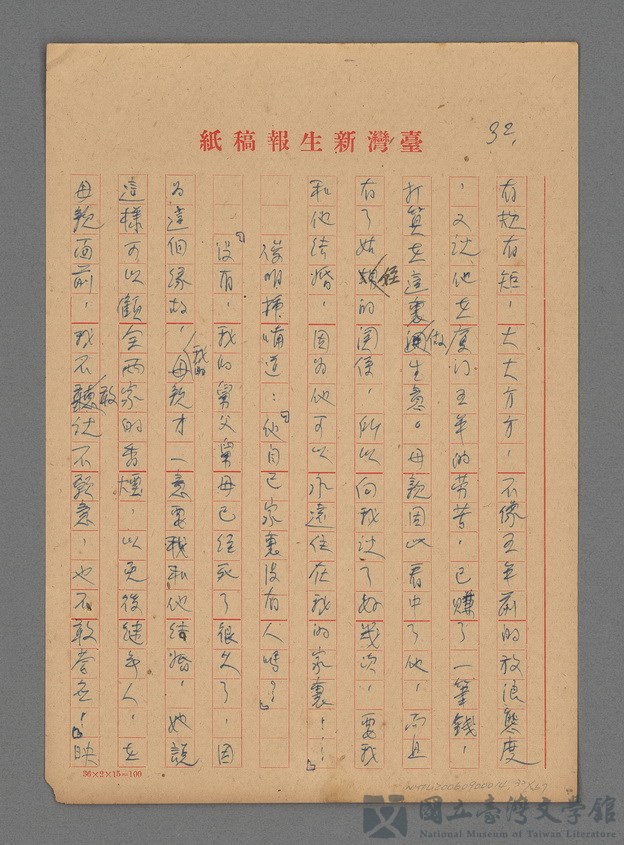 32.
臺灣新生報稿紙
有規有矩，大大方方，不像五年前的放浪態度
，又說他在厦门五年的勞苦，已賺了一筆錢，
打算在這裏做生意。母親因此看中了他，而且
有了姑姪的関係，所以向我說了好幾次，要我
和他结婚，因為他可以永遠住在我的家裏！！」
俊明插嘴道：「他自己家裏没有人嗎？」
「没有，我的舅父舅母已經死了很久了，因
為這個缘故，我的母親才一意要我和他结婚，她說
這樣可以顧全两家的香煙，以免後继無人，在
母親面前，我不敢說不願意，也不敢答应！」映
36×2×15=100
NMTL20060900014, 37×67
國立臺灣文学館
National Museum of Taiwan Literature